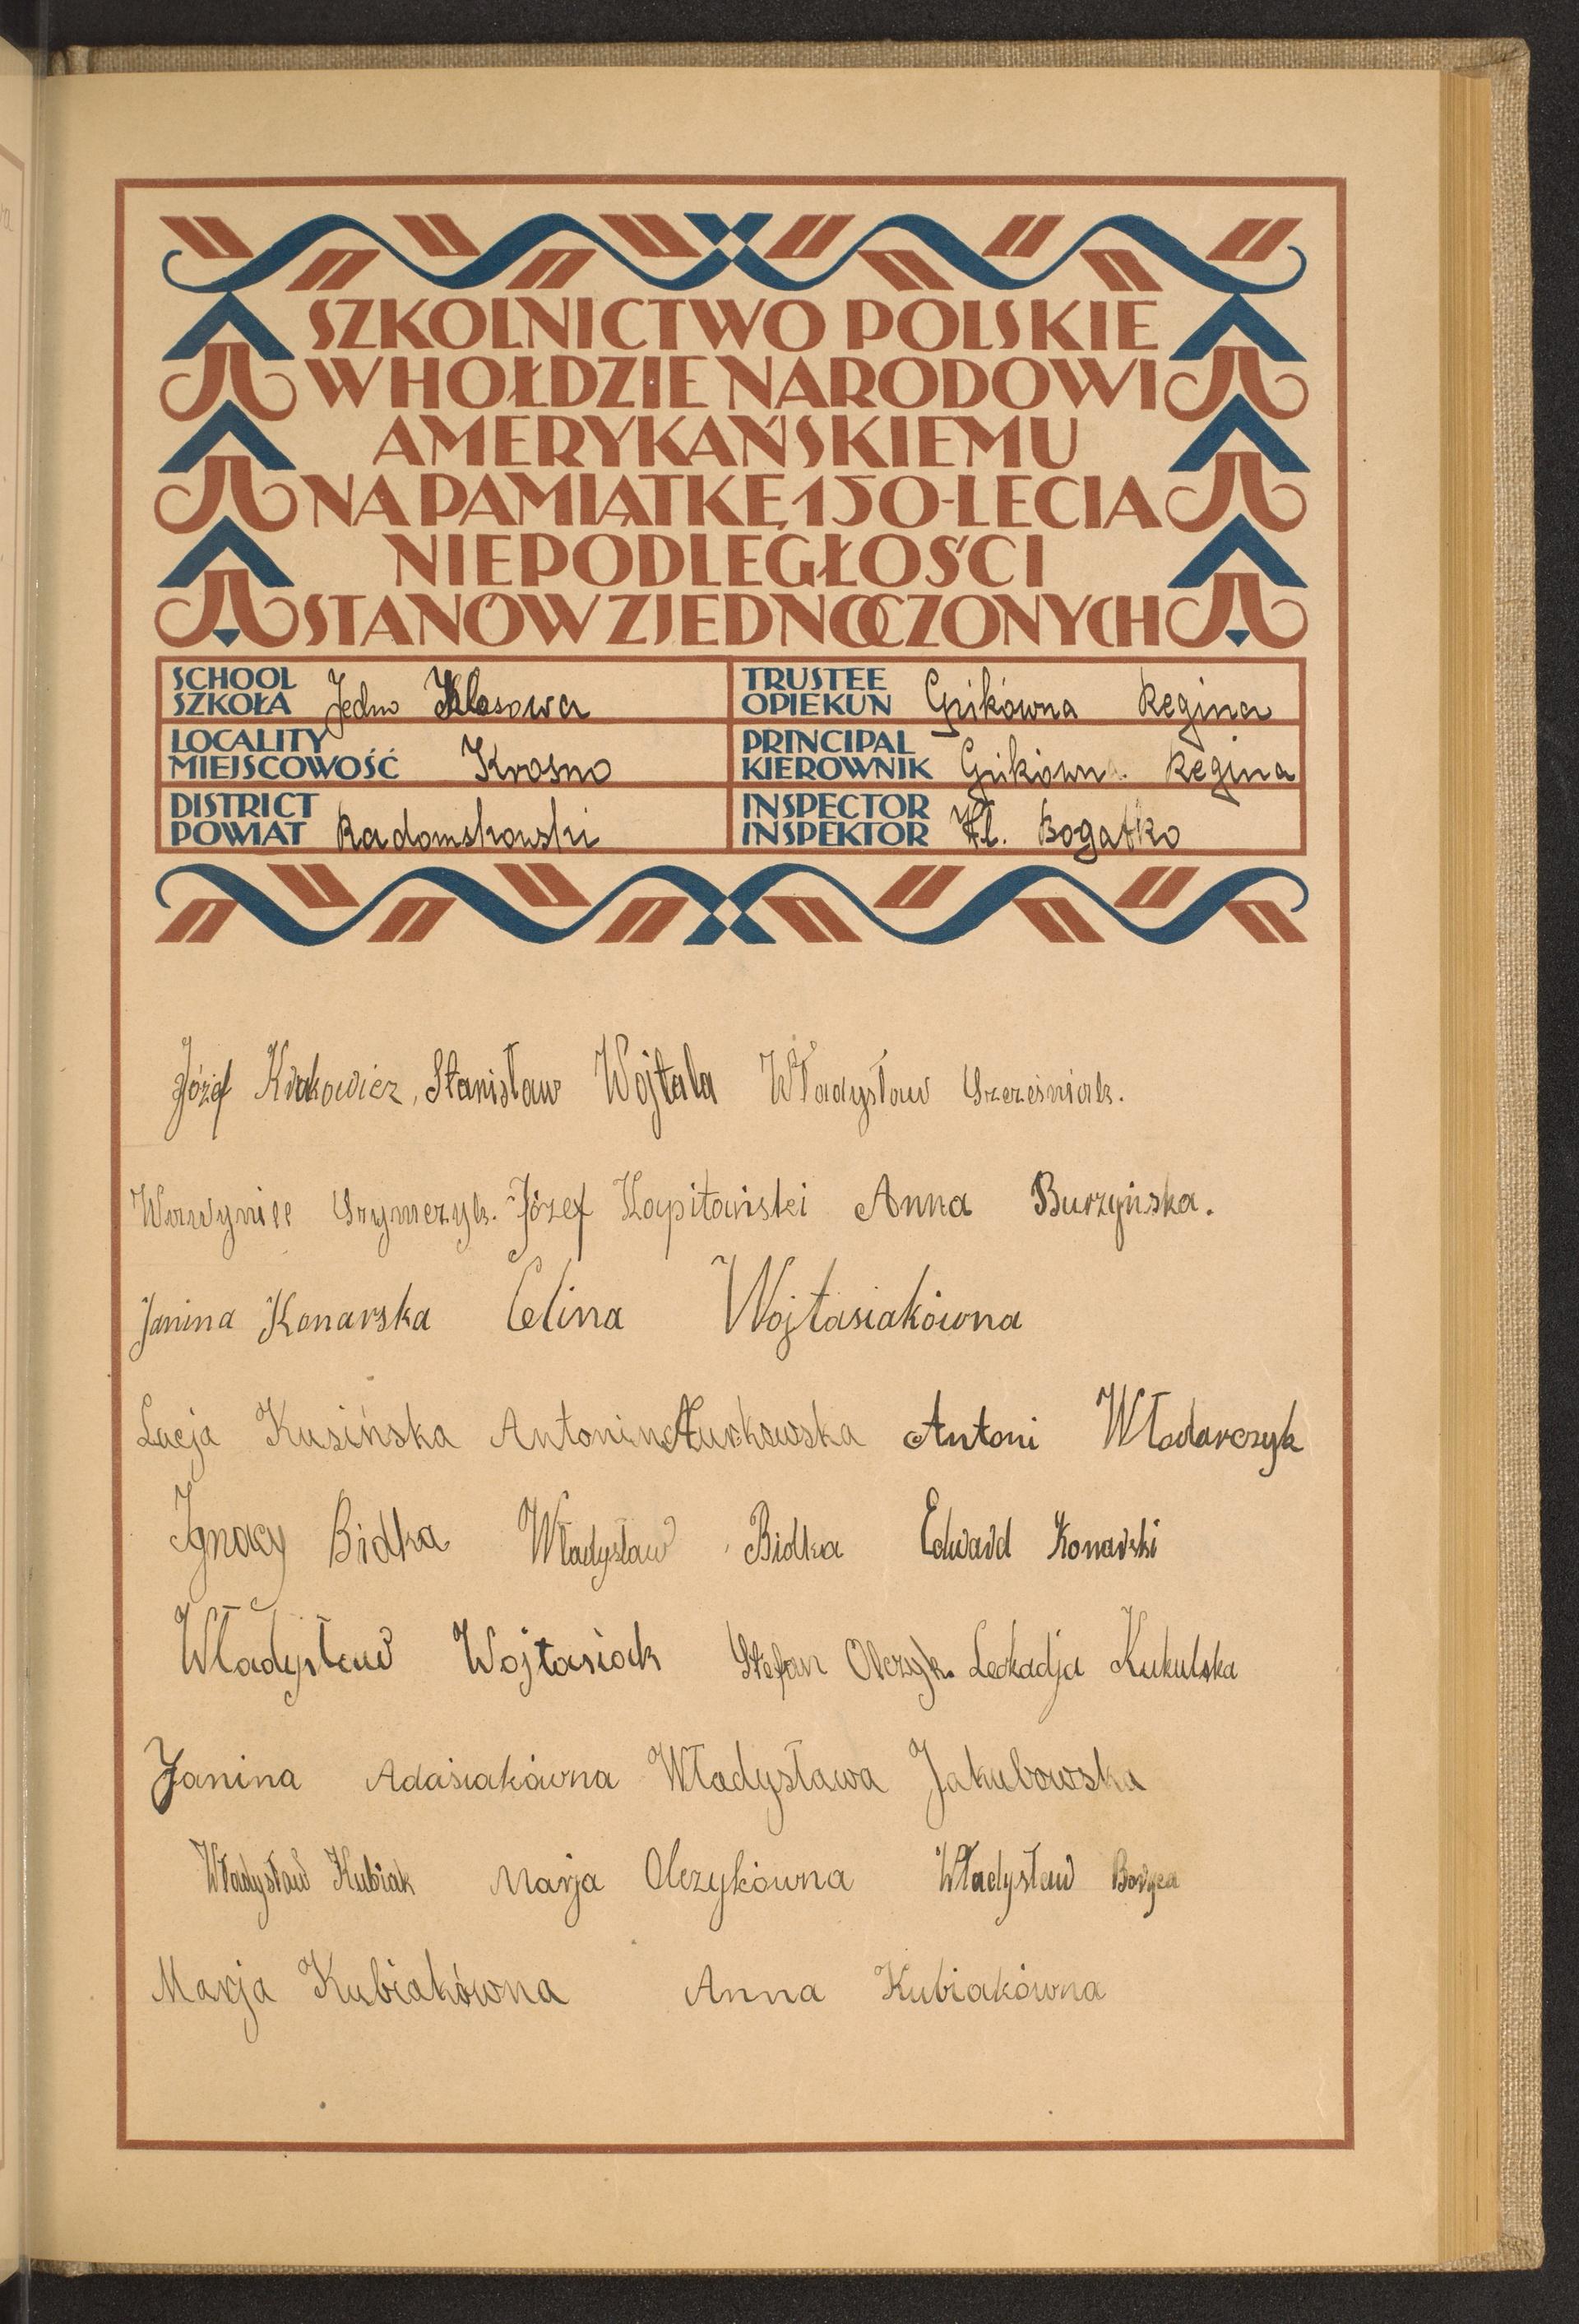 SZKOLNICTWO POLSKIE
W HOŁDZIE NARODOWI
AMERYKAŃSKIEMU
NA PAMIĄTKĘ 150-LECIA
NIEPODLEGŁOŚCI
STANÓW ZJEDNOCZONYCH
SCHOOL SZKOŁA Jedno Klasowa
TRUSTEE OPIEKUN Regina
LOCALITY MIEJSCOWOŚĆ Krosno
PRINCIPAL KIEROWNIK Regina
DISTRICT POWIAT Radomskowski
INSPECTOR INSPEKTOR Wł. Bogatko
Józef Krakowicz, Stanisław Wojtala Władysław Szcześniak.
Wawrzyniec Szymczyk. Józef Kapitański Anna Burzyńska.
Janina Konarska Celina Wojtasiakówna
Lucja Kusińska Antonina Antoni Włodarczyk
Ignacy Bidka Władysław Bidka Edward Konarski
Władysław Wojtasiak Stefan Olczyk. Leokadja Kukulska
Janina Adasiakówna Władysława Jakubowska
Władysław Kubiak Marja Olczykówna Władysław
Marja Kubiakówna Anna Kubiakówna